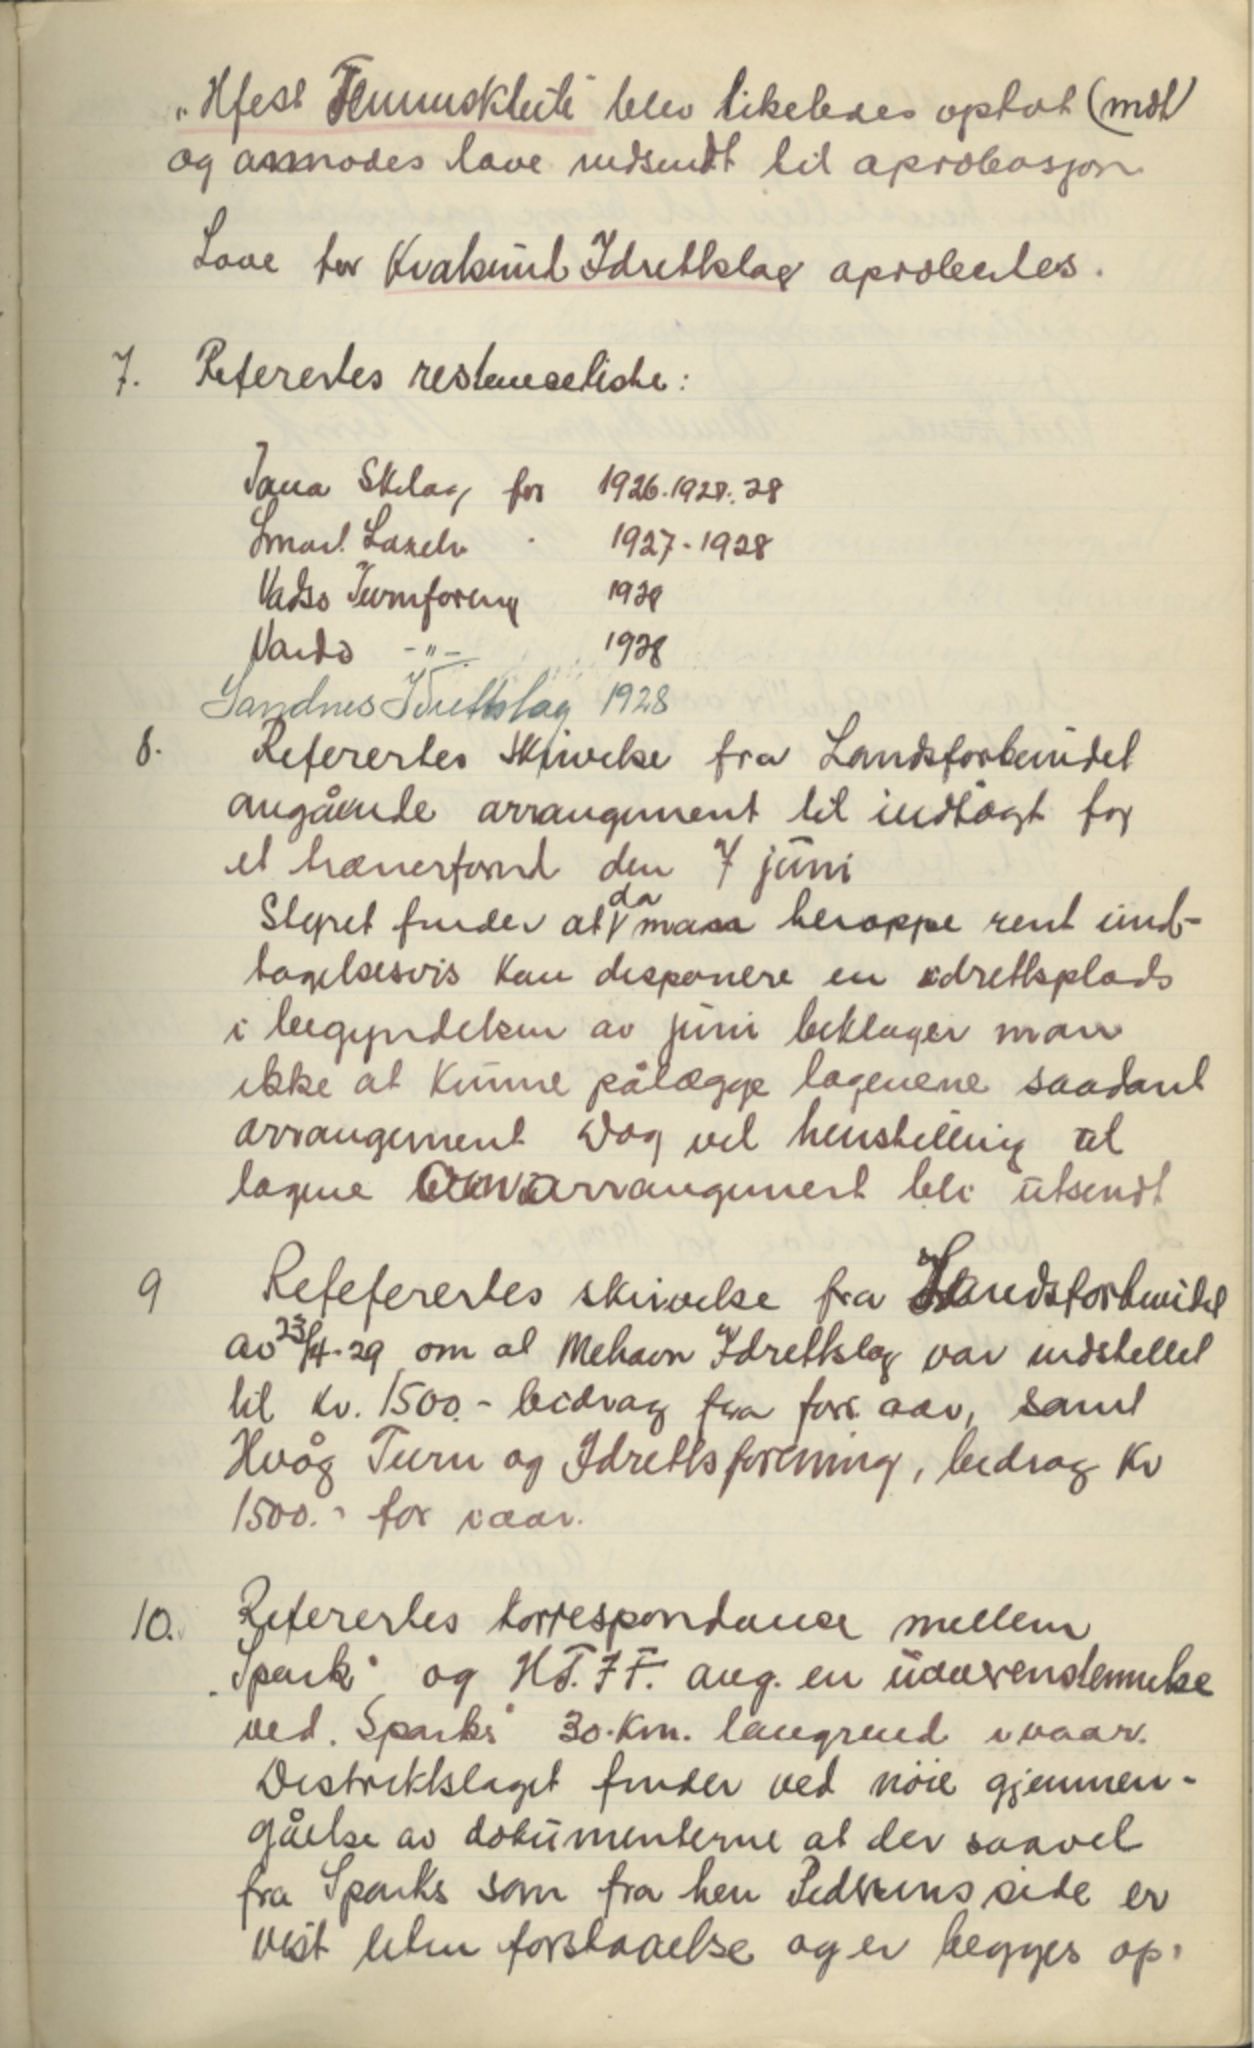 "Hfest Tennisklub" blev likeledes optat (mdl)
og anmodes lave indsendt til aprobasjon
Love for Kvalsund Idrettslag aprobertes.
7. Refererte restanseliste:
Tana Skilag for 1926.1927.28
Smaal. Laxelv " 1927-1928
Vadsø Turnforening 1928
Vardø -"- 1928
Sandnes Idrettslag 1928
8. Refererte skrivelse fra Landsforbundet
angående arrangement til indtægt for
et trænerfond den 7 juni
Styret finder at da man heroppe rent und-
tagelsesvis kan disponere en idrettsplads
i begyndelsen av juni beklager man
ikke at kunne pålægge lagene saadant
arrangement Dog vil henstilling til
lagene arrangement bli utsendt
9 Refefererte skrivelse fra Landsforbundet
av 23/4-29 om at Mehavn Idrettslag var indstillet
til kr. 1500.- bidrag fra forr. aar, samt
Hvåg Turn og Idrettsforening, bidrag Kr
1500.- for iaar.
10. Refererte korrespondanse mellem
"Spark" og H.T.I.F. ang. en uoverenstemmelse
ved "Sparks" 30.km. langrend ivaar.
Distriktslaget finder ved nøie gjennem-
gåelse av dokumenterne at der saavel
fra Sparks som fra herr Pedersens side er
vist liten forstaaelse og er begges op-